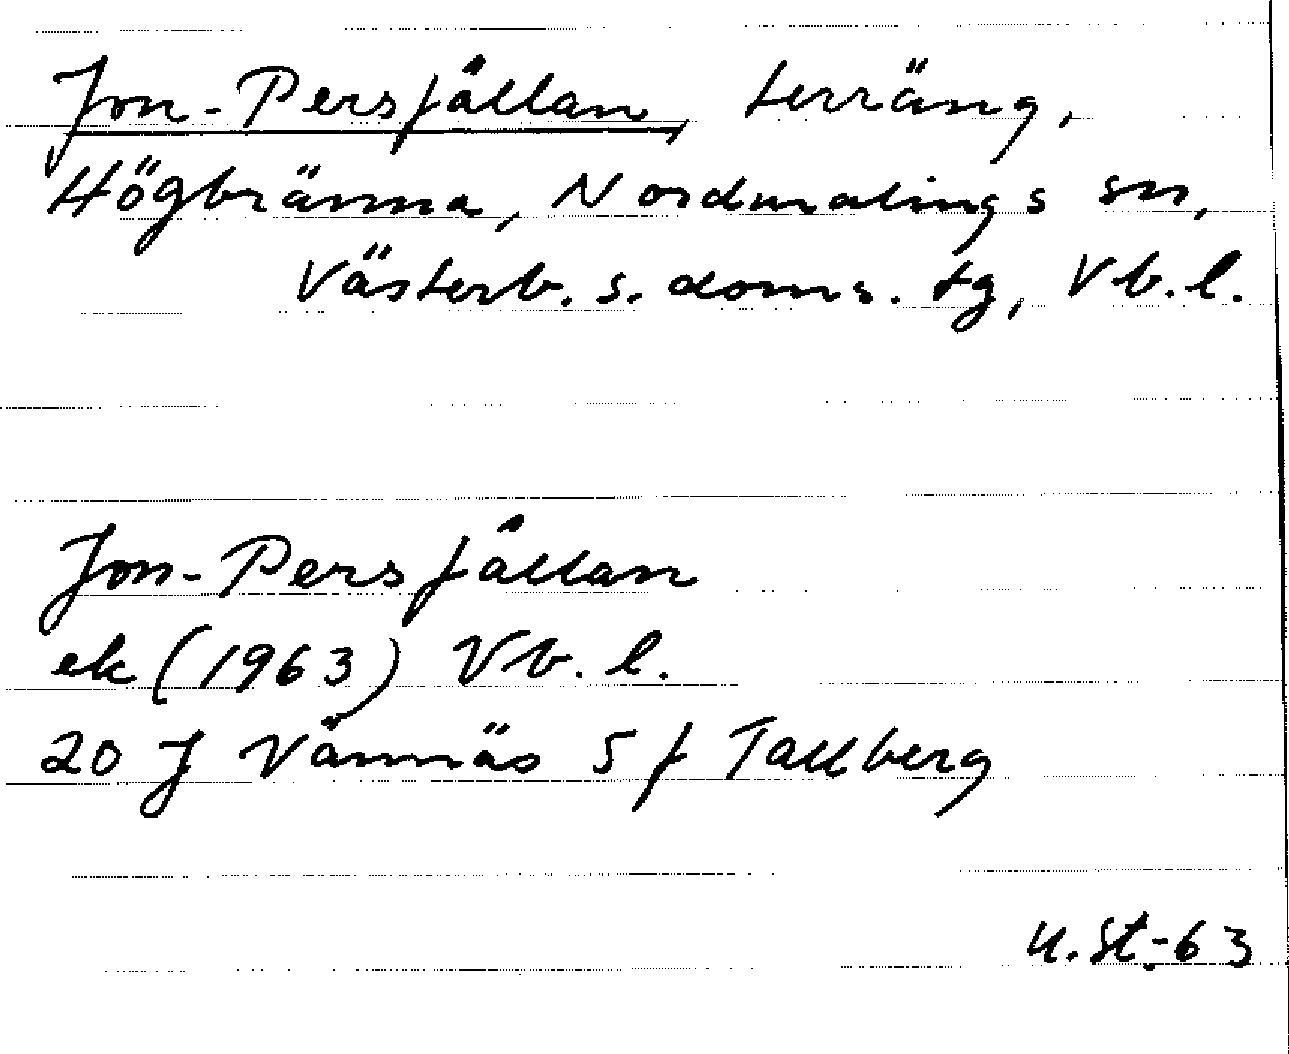 Jon-Persfällan, terräng,
Högbränna, Nordmalings sn,
Västerb. s. doms. tg, Vb. l.
Jon-Persfällan
ek (1963) Vb. l.
20 J Vännäs 5 f Tallberg
U.St.-63